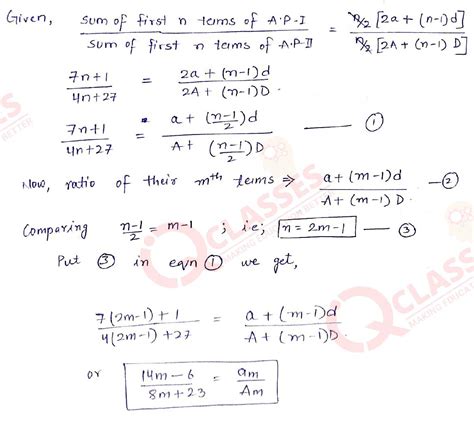 Given, sum of first n terms of A.P-I / sum of first n terms of A.P-II = n/2 [2a + (n-1)d] / n/2 [2A + (n-1) D]
7n+1 / 4n+27 = 2a + (n-1)d / 2A + (n-1)D
7n+1 / 4n+27 = a + (n-1)/2 d / A + (n-1)/2 D — ①
Now, ratio of their mth terms ⇒ a + (m-1)d / A + (m-1)D — ②
Comparing n-1/2 = m-1 ; i.e; n = 2m-1 — ③
Put ③ in eqn ① we get,
7(2m-1)+1 / 4(2m-1)+27 = a + (m-1)d / A + (m-1)D
or 14m-6 / 8m+23 = am / Am
CLASSES
MAKING EDUCATION BETTER